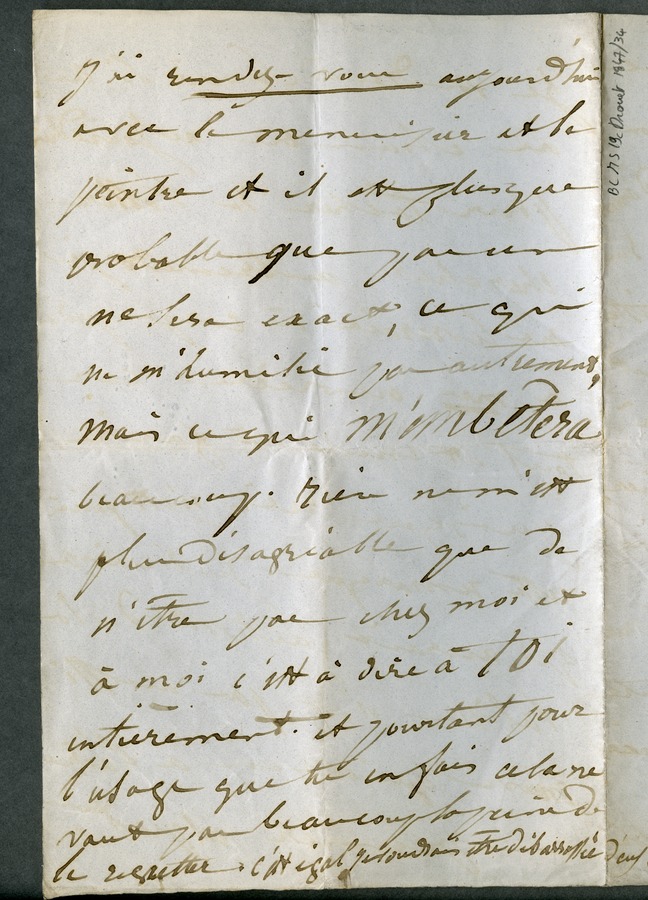 J'ai rendez-vous aujourd'hui
avec le menuisier et le
peintre et il est plus que
probable que pas un
ne sera exact, ce qui
ne m'humilie pas autrement,
mais ce qui m'embêtera
beaucoup. Rien ne m'est
plus désagréable que de
n'être pas chez moi et
à moi c'est à dire à TOI
entièrement. Et pourtant pour
l'usage que tu en fais cela ne
vaut pas beaucoup la peine de
le regretter. C'est égal je voudrais être débarrassée d'eux
BC MS 19c Drouet 1847/34